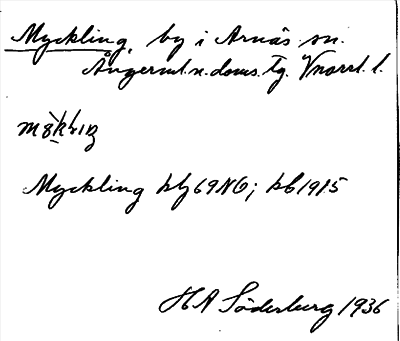 Myckling, by i Arnäs sn.
Ångerml. n. doms. tg. Vnorrl. l.
Myckling kbg69NO; kb1915
HA Söderberg 1936